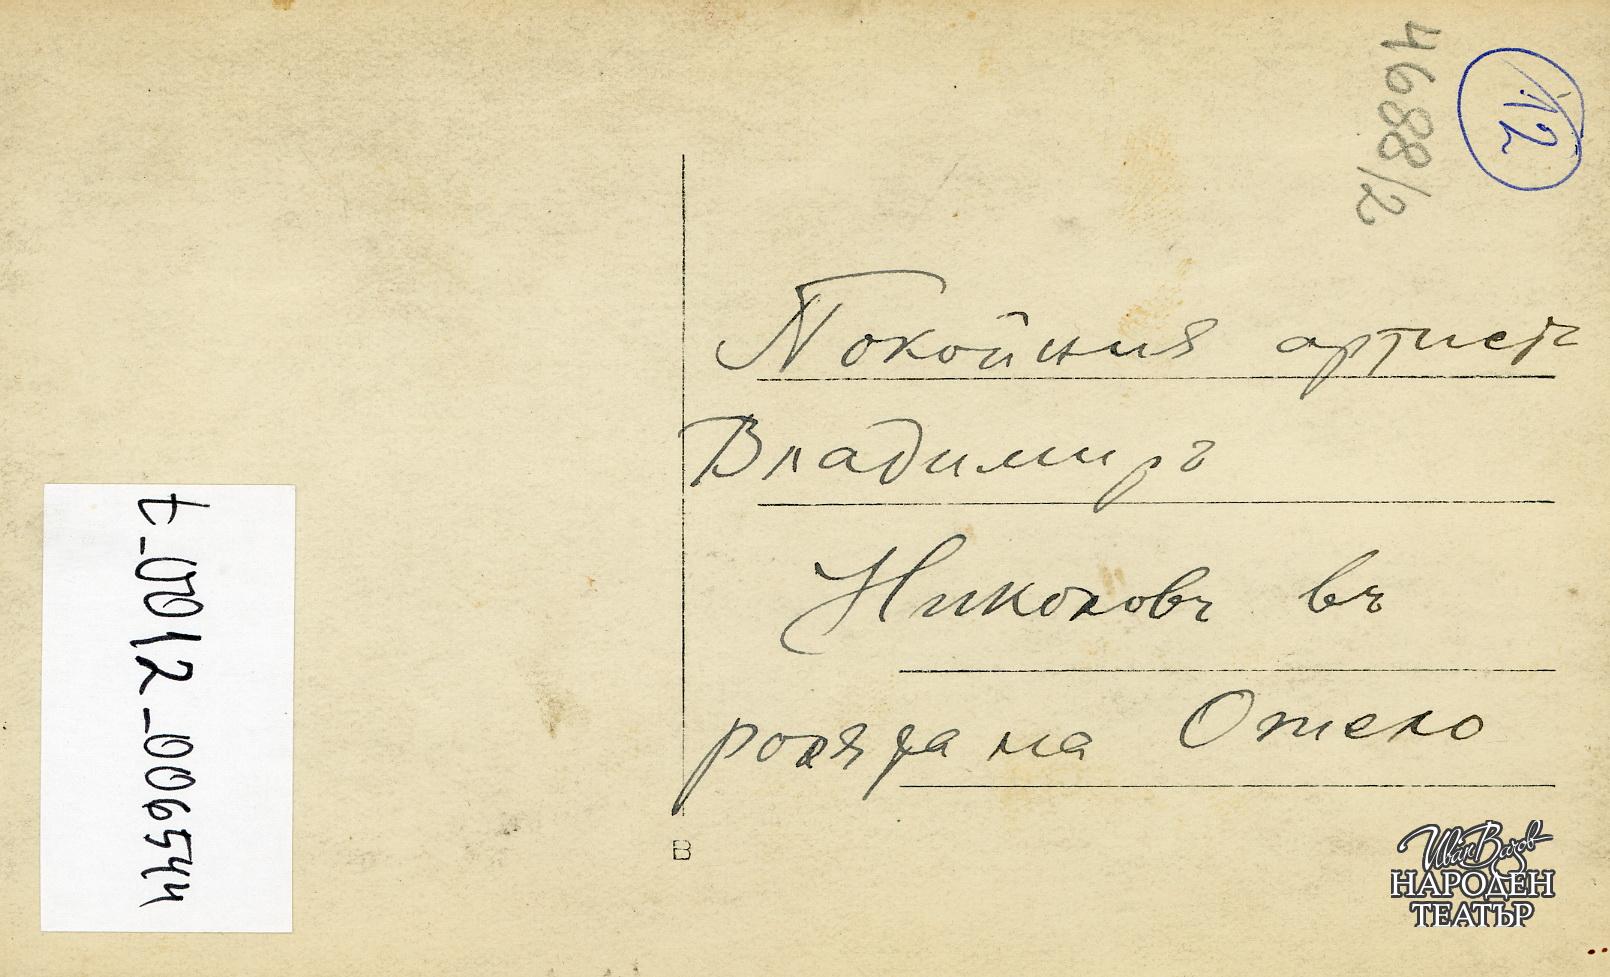 12
4688/2
Покойния артистъ
Владимиръ
Николовъ въ
ролята на Отело
t_0012_006544
B
Иван Вазов
НАРОДЕН
ТЕАТЪР